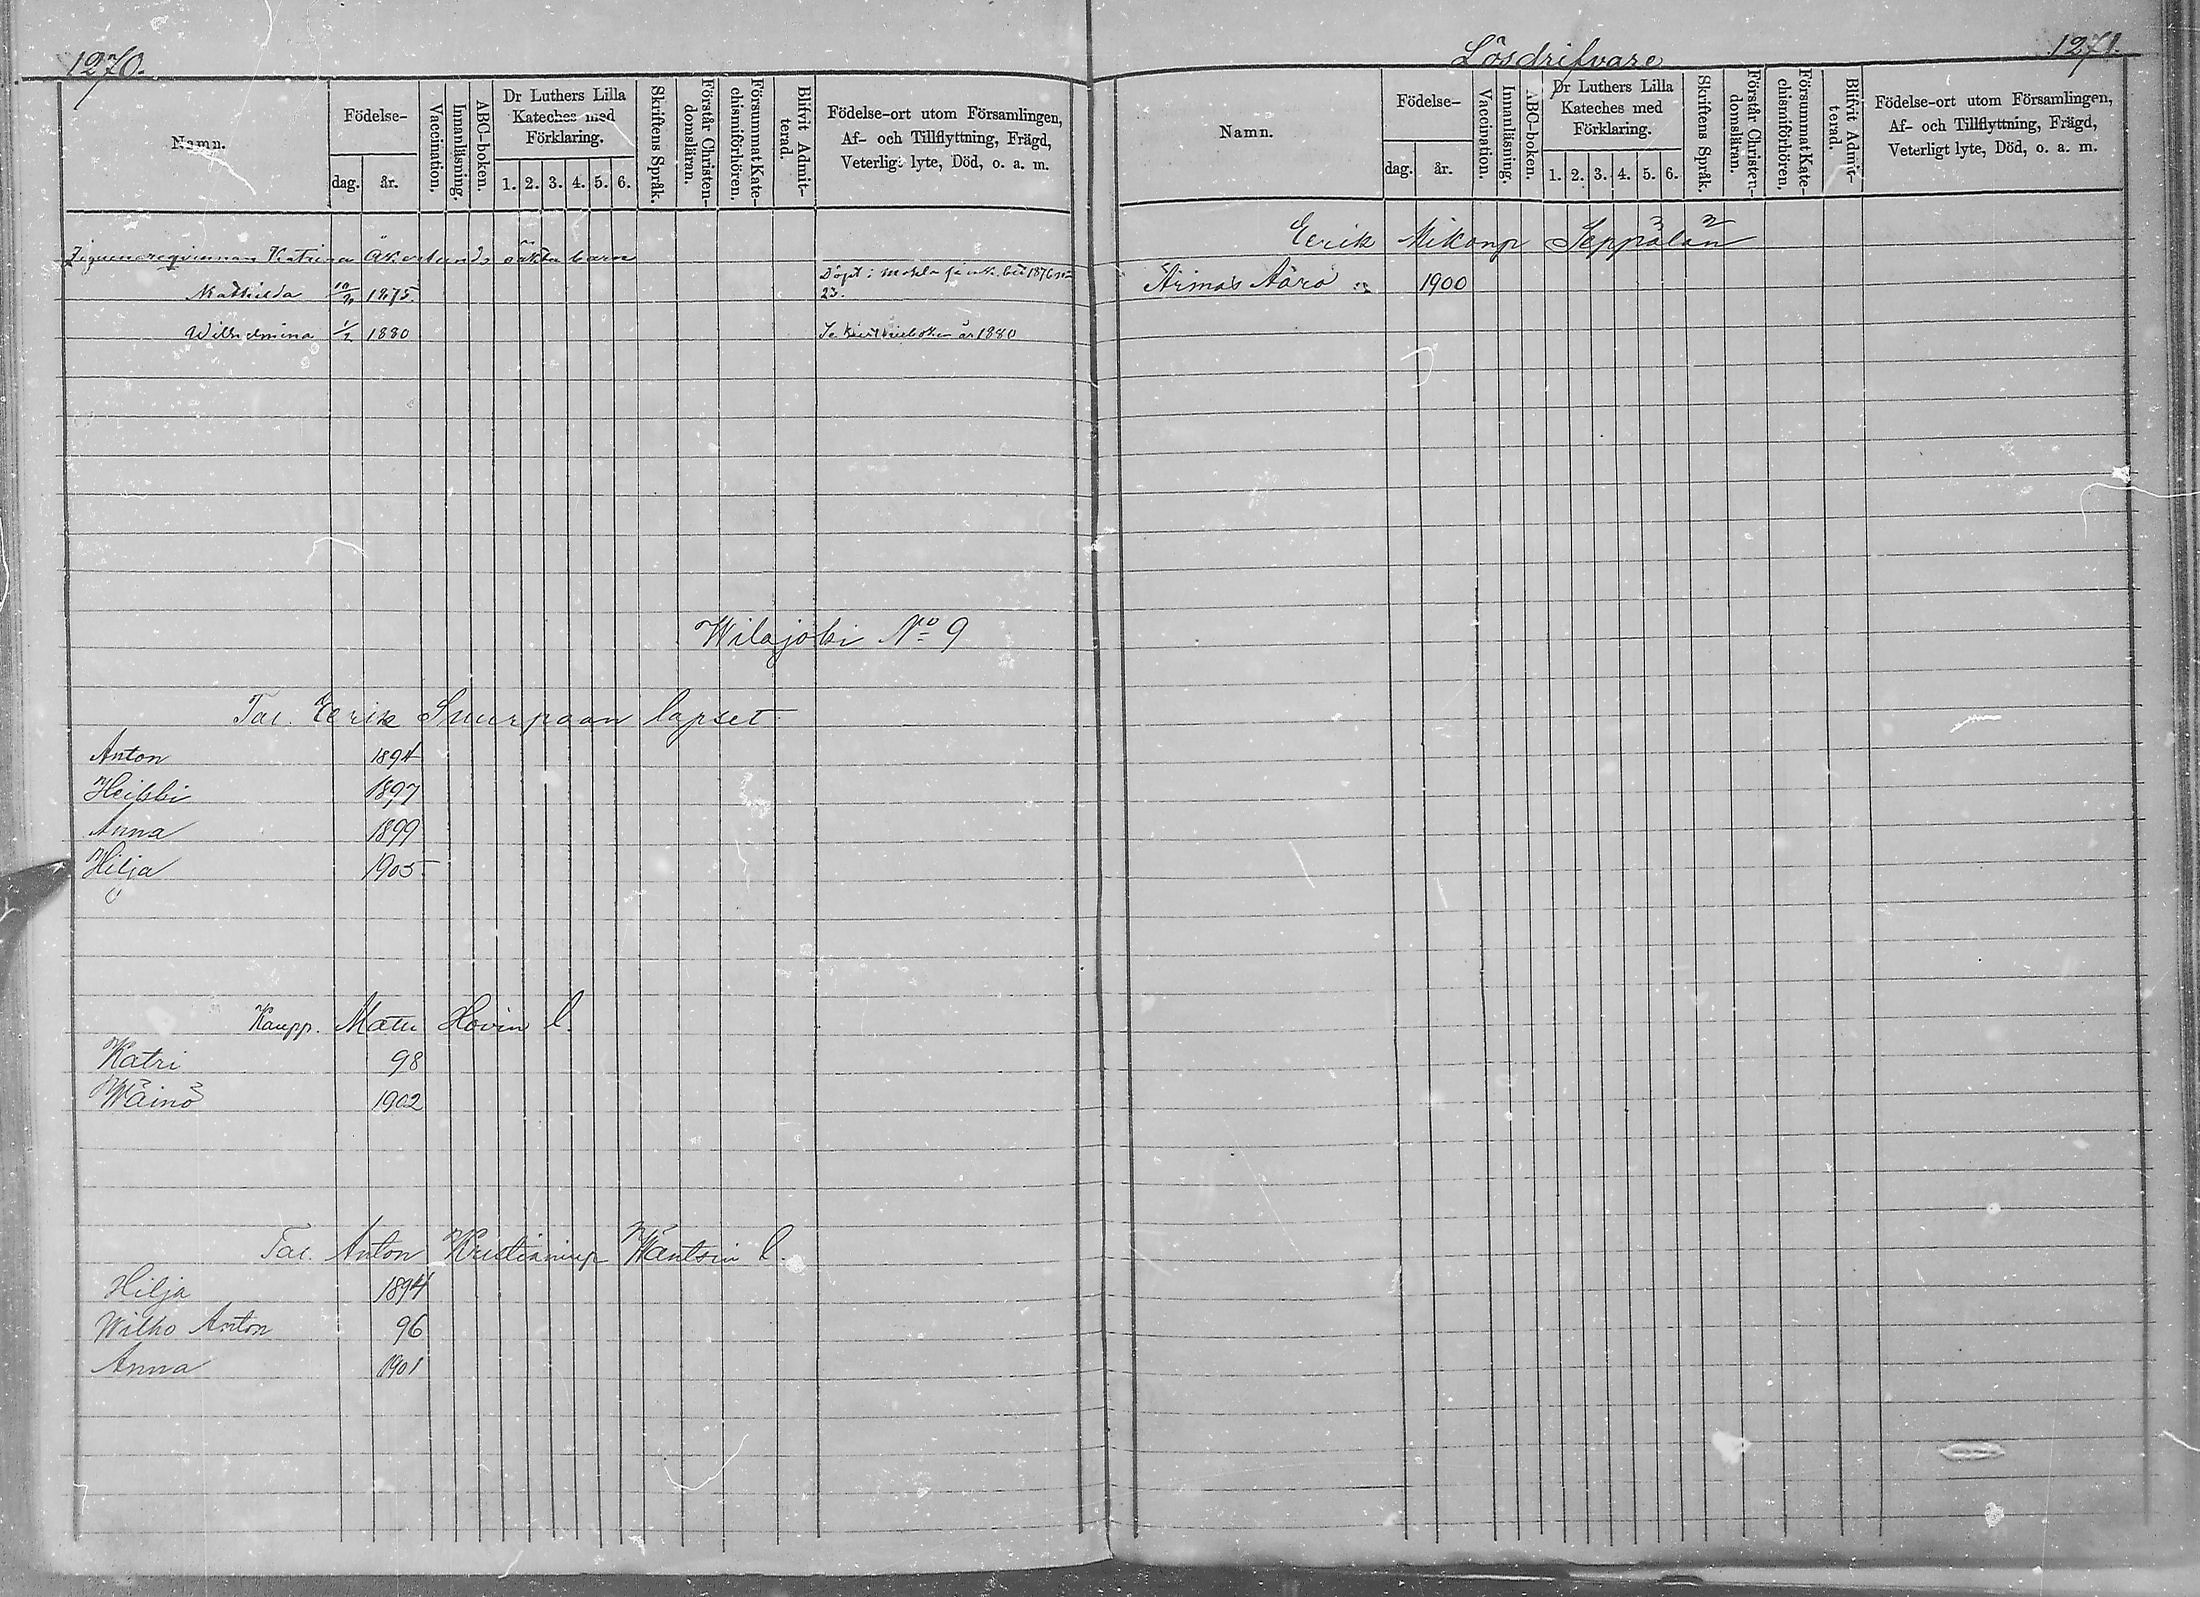 1270.
Namn.
Födelse-
dag. år.
Vaccination.
Innanläsning.
ABC-boken.
Dr Luthers Lilla
Kateches med
Förklaring.
1. 2. 3. 4. 5. 6.
Skriftens Språk.
Förstår Christen-
domsläran.
Försummat Kate-
chismiförhören.
Blifvit Admit-
terad.
Födelse-ort utom Församlingen,
Af- och Tillflyttning, Frägd,
Veterligt lyte, Död, o. a. m.
Katrina Åkerlunds oäkta barn
Mathilda 1875 Döpt i 1876 no
23.
Wilhelmina 1/2 1880 år 1880
Wilajoki No 9
Tal. Eerik Suurpään lapset
Anton 1894
Heikki 1897
Anna 1899
Hilja 1905
Kaupp. Matti Hovin l.
Katri 98
Wäinö 1902
Tal. Anton Kristianinp Wäntsin l.
Hilja 1894
Wilho Anton 96
Anna 1901
Lösdrifvare
1271.
Namn.
Födelse-
dag. år.
Vaccination.
Innanläsning.
ABC-boken.
Dr Luthers Lilla
Kateches med
Förklaring.
1. 2. 3. 4. 5. 6.
Skriftens Språk.
Förstår Christen-
domsläran.
Försummat Kate-
chismiförhören.
Blifvit Admit-
terad.
Födelse-ort utom Församlingen,
Af- och Tillflyttning, Frägd,
Veterligt lyte, Död, o. a. m.
Eerik Mikonp Seppälän
Armas Aaro 1900